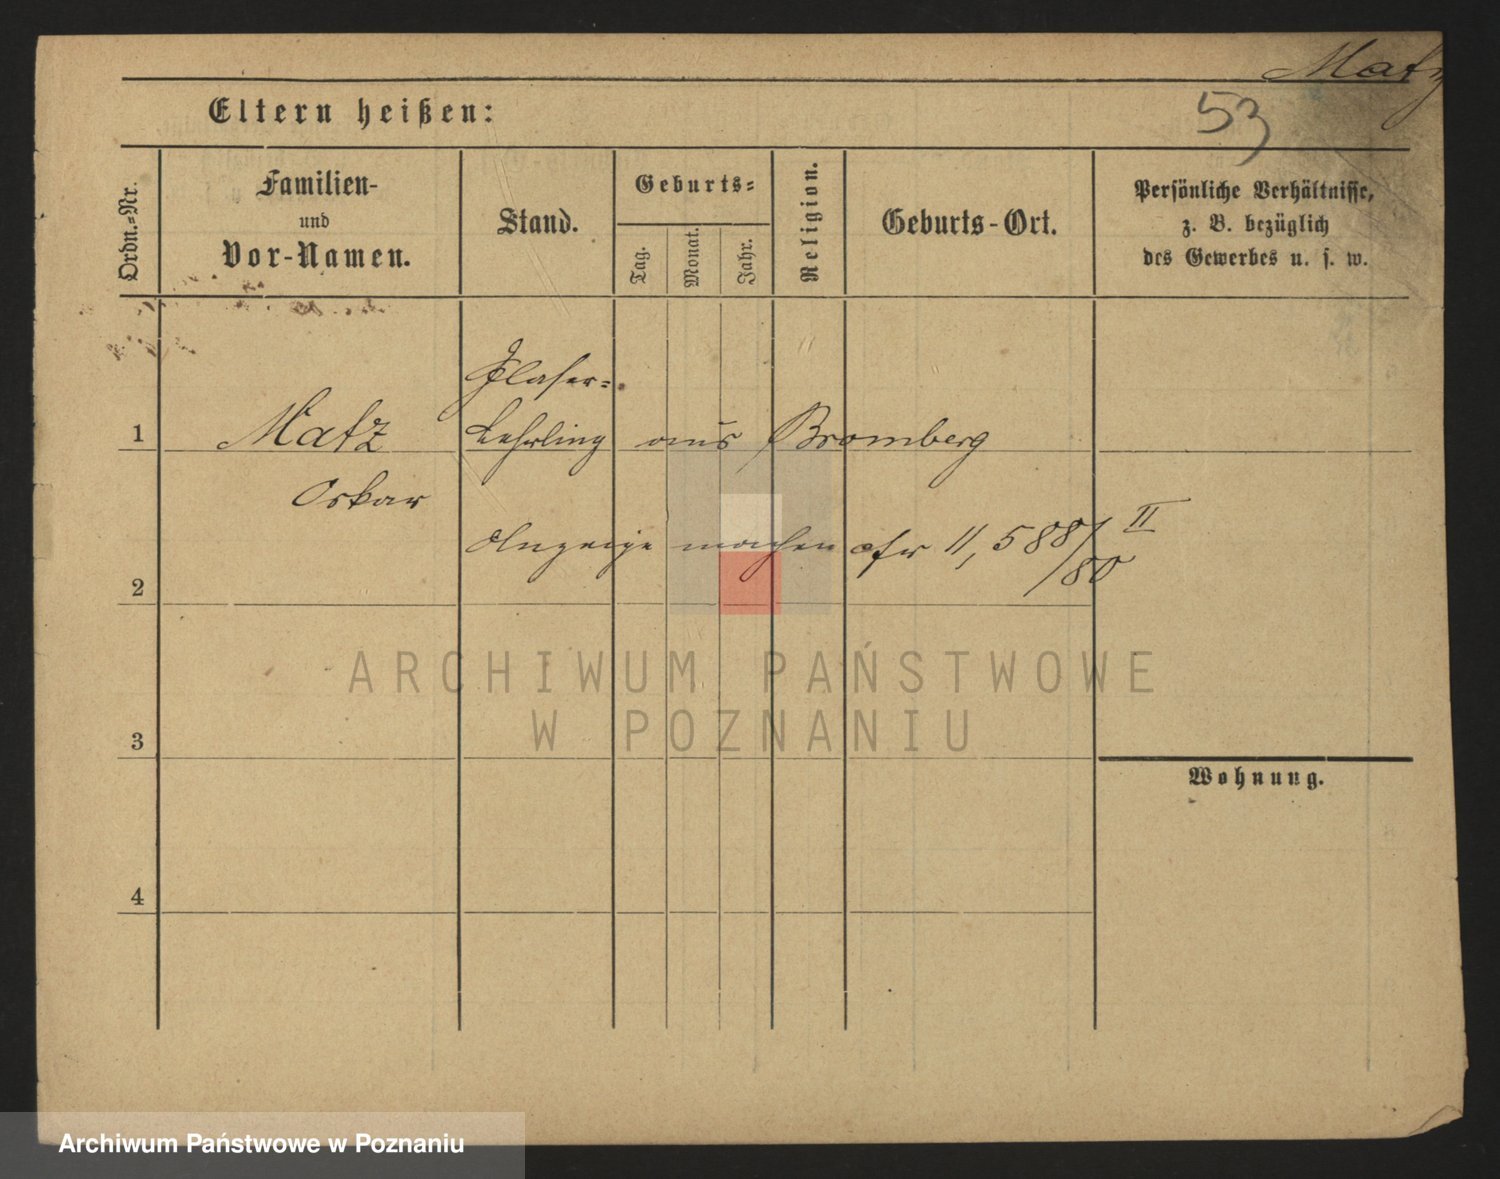 Matz
Eltern heißen:
53
Ordn.-Nr.
Familien-
und
Vor-Namen.
Stand.
Geburts-
Tag.
Monat.
Jahr.
Religion.
Geburts-Ort.
Persönliche Verhältnisse,
z. B. bezüglich
des Gewerbes u. s. w.
Glaser-
1 Matz Lehrling aus Bromberg
Oskar
Anzeige machen 11,588/80 II
2
ARCHIWUM PAŃSTWOWE
W POZNANIU
3
Wohnung.
4
Archiwum Państwowe w Poznaniu